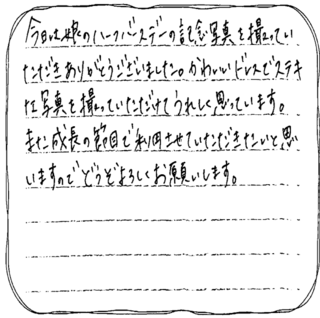 今日は娘のハーフバスデーの記念写真を撮ってい
ただきありがとうございました。かわいいドレスでステキ
な写真を撮っていただけてうれしく思っています。
また成長の節目で利用させていただきたいと思
いますのでどうぞよろしくお願いします。